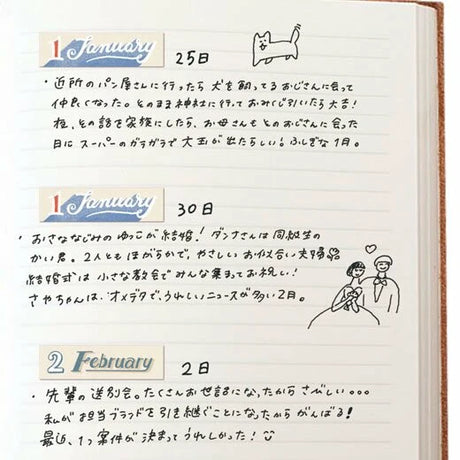 1 January 25日
・近所のパン屋さんに行ったら犬を飼ってるおじさんに会って
仲良くなった。そのまま神社に行っておみくじ引いたら大吉!
夜、その話を家族にしたら、お母さんもそのおじさんに会った
日にスーパーのガラガラで大玉が出たらしい!ふしぎな1月。
1 January 30日
・おさななじみのゆっこが結婚!ダンナさんは同級生の
かい君。2人ともほがらかで、やさしいお似合い夫婦
結婚式は小さな教会でみんな集まってお祝い!
さやちゃんは、オメデタで、うれしいニュースが多い2月。
2 February 2日
・先輩の送別会。たくさんお世話になったからさびしい...
私が担当ブランドを引き継ぐことになったからがんばる!
最近、1つ案件が決まってうれしかった!